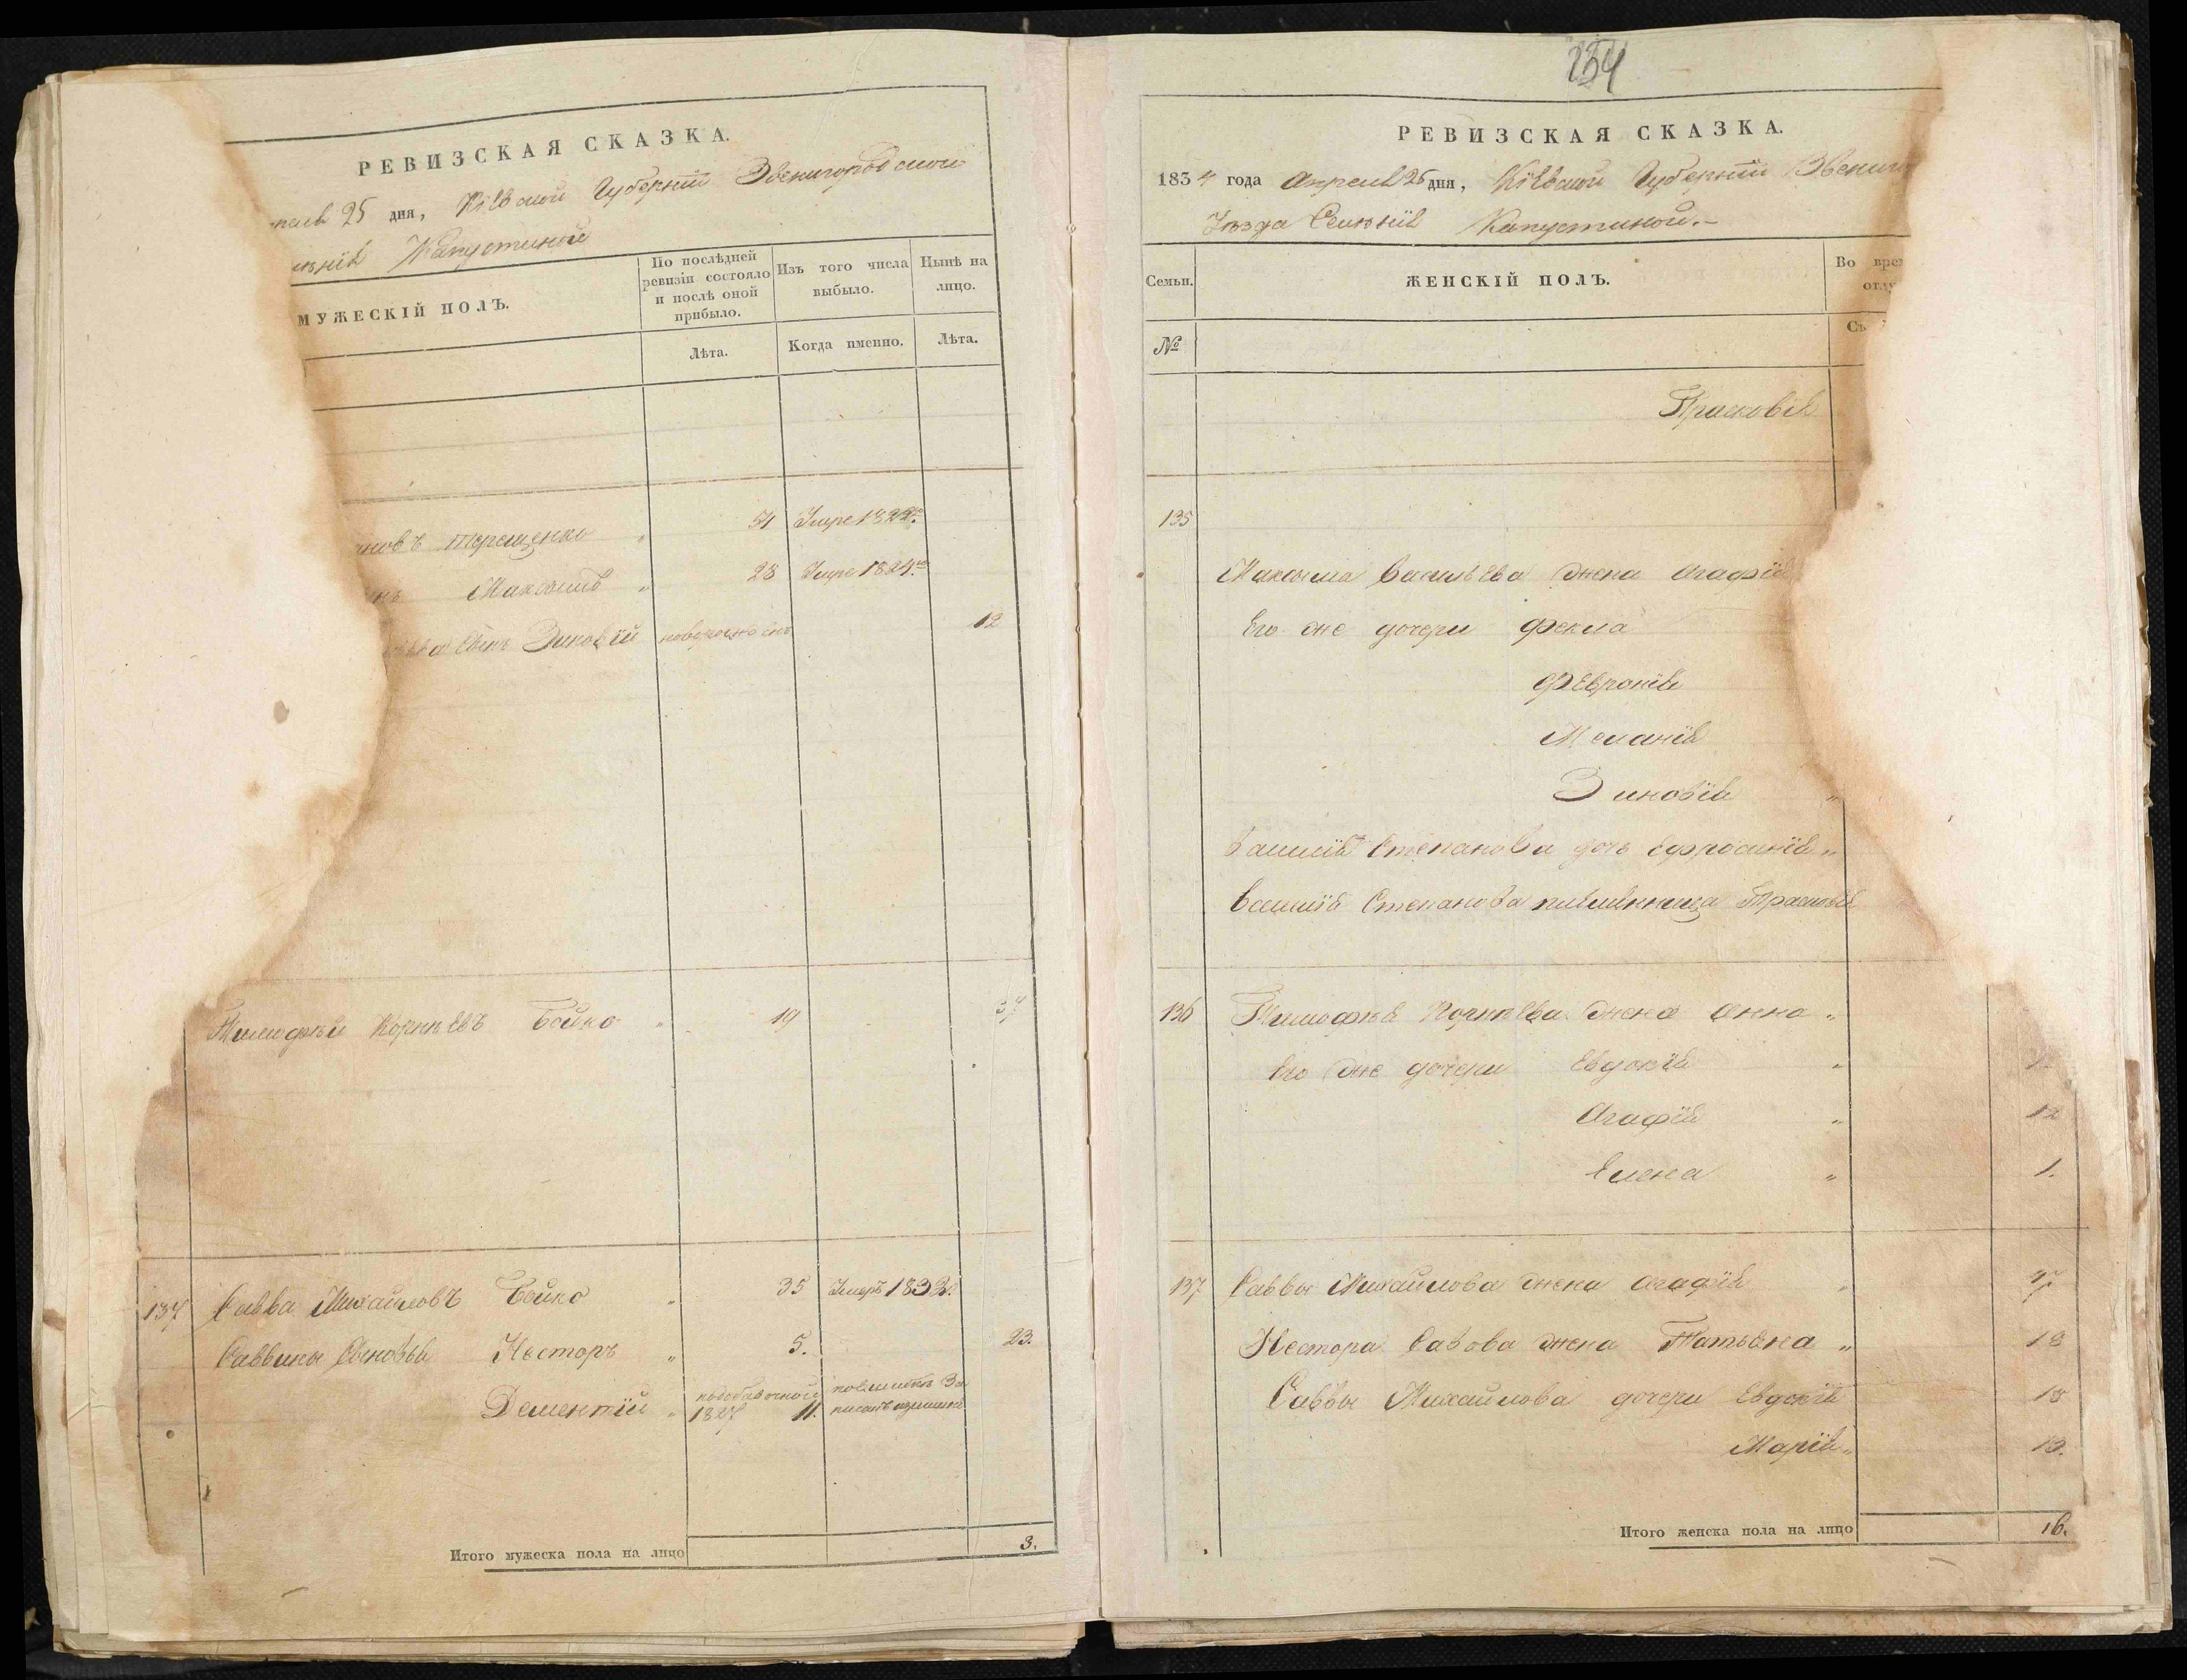 РЕВИЗСКАЯ СКАЗКА.
25 дня, Кіевской Губерніи Звенигородской
Капустиной
МУЖЕСКІЙ ПОЛЪ.
По послѣдней ревизіи состояло и послѣ оной прибыло.
Изъ того числа выбыло.
Нынѣ на лицо.
Лѣта.
Когда именно.
Лѣта.
Терещенко 51 Умре 1822го
Максимъ " 28 Умре 1824го
Сынъ Зиновій новорожденъ 12
Тимофѣй Корнѣевъ Бойко " 19 34
137 Савва Михайловъ Бойко " 35 Умеръ 1832.
Саввины Сыновья Несторъ " 5. 23.
Дементій " 1827 11.
Итого мужеска пола на лицо 3.
254
РЕВИЗСКАЯ СКАЗКА.
1834 года Апреля 25 дня, Кіевской Губерніи
Уѣзда Селенія Капустиной.
Семьи.
ЖЕНСКІЙ ПОЛЪ.
Во
№
Съ
Прасковія
135
Максима Васильева жена Агафія
Его же дочери Фекла
Февронія
Меланія
Зиновія "
Василія Степанова дочь Ефросинія "
Василія Степанова племянница Прасковія
136 Тимофѣя Корнѣева жена Анна "
Его же дочери Евдокія "
Агафія " 12
Елена " 1.
137 Саввы Михайлова жена Агафія "
Нестора Савова жена Татьяна " 18
Саввы Михайлова дочери Евдокія 18
Марія " 13.
Итого женска пола на лицо 16.